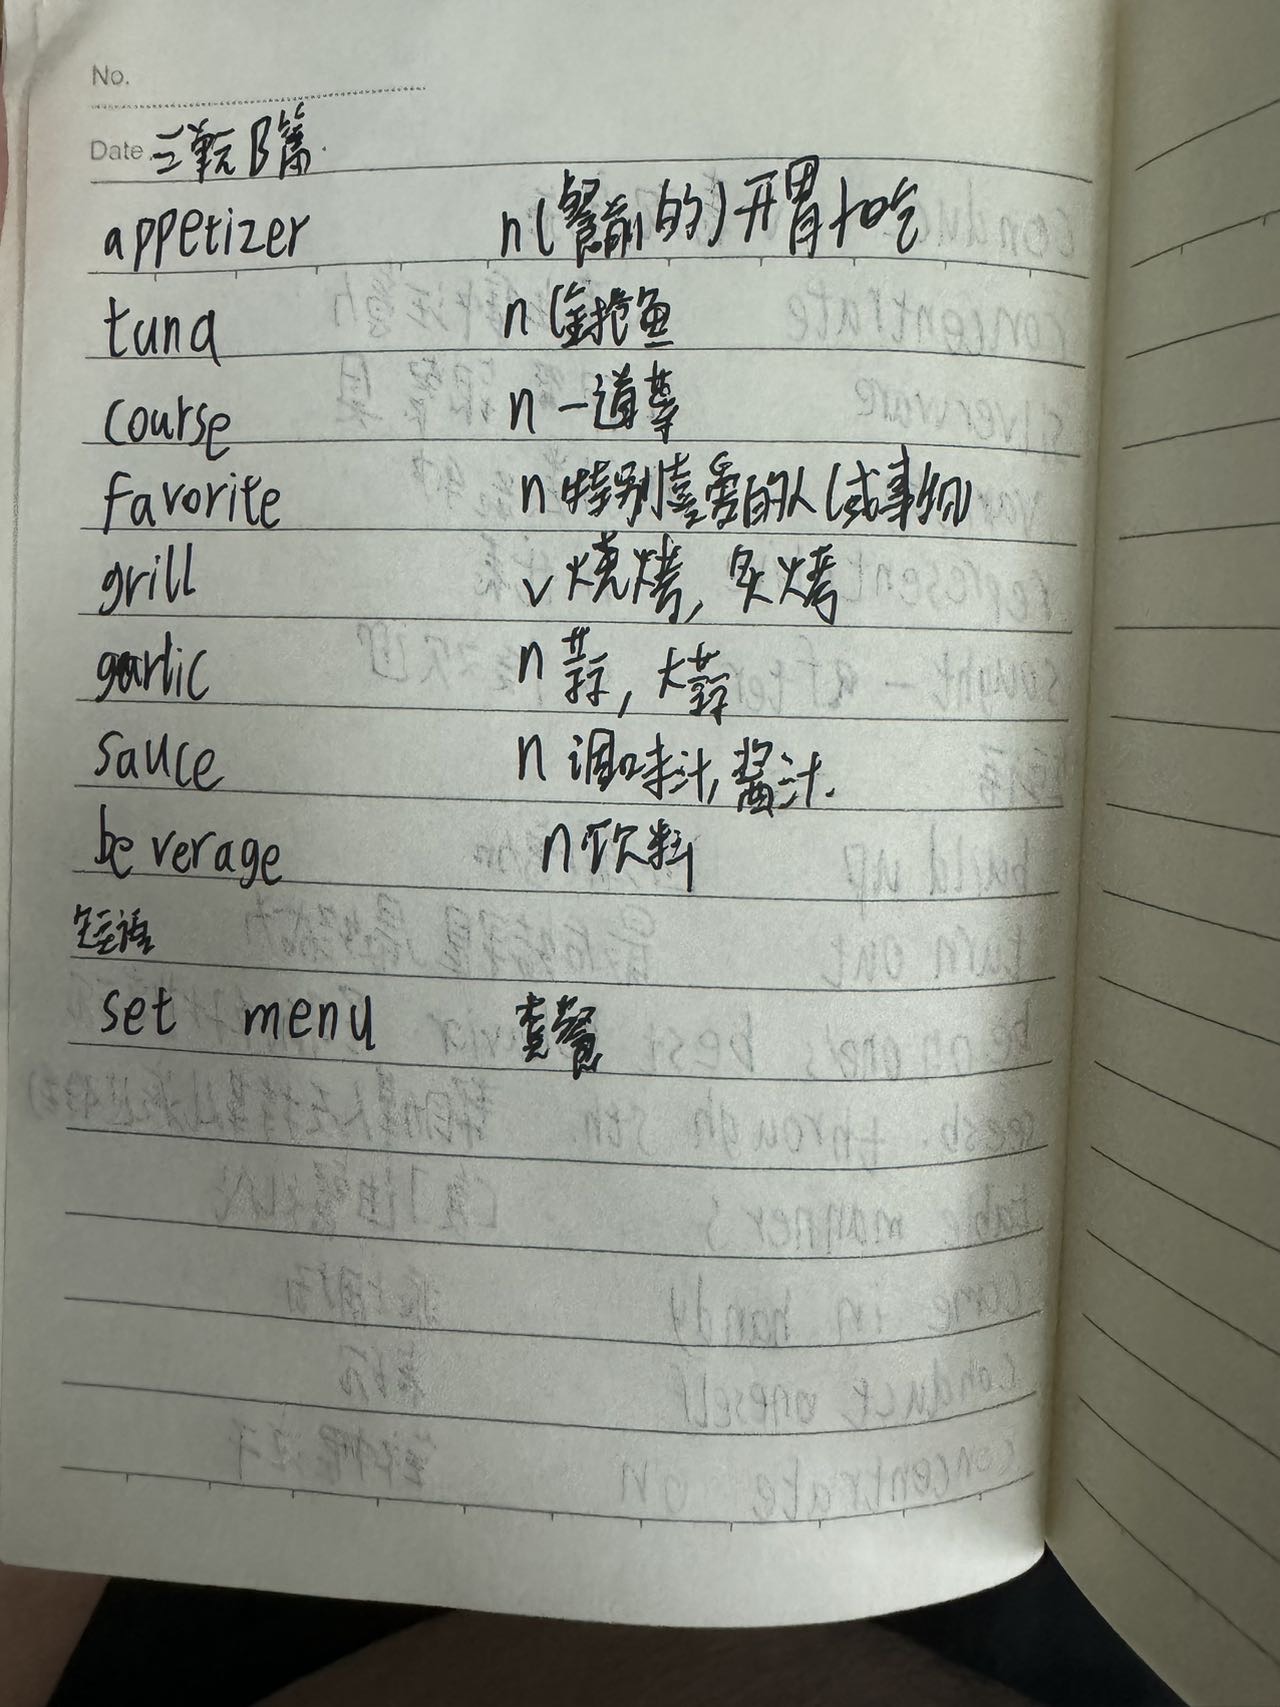 No.
Date 三单元B篇.
appetizer n(餐前的)开胃小吃
tuna n 金抢鱼
course n 一道菜
favorite n 特别喜爱的人(或事物)
grill v 烧烤, 炙烤
garlic n 蒜, 大蒜
sauce n 调味汁, 酱汁.
beverage n 饮料
短语
set menu 套餐